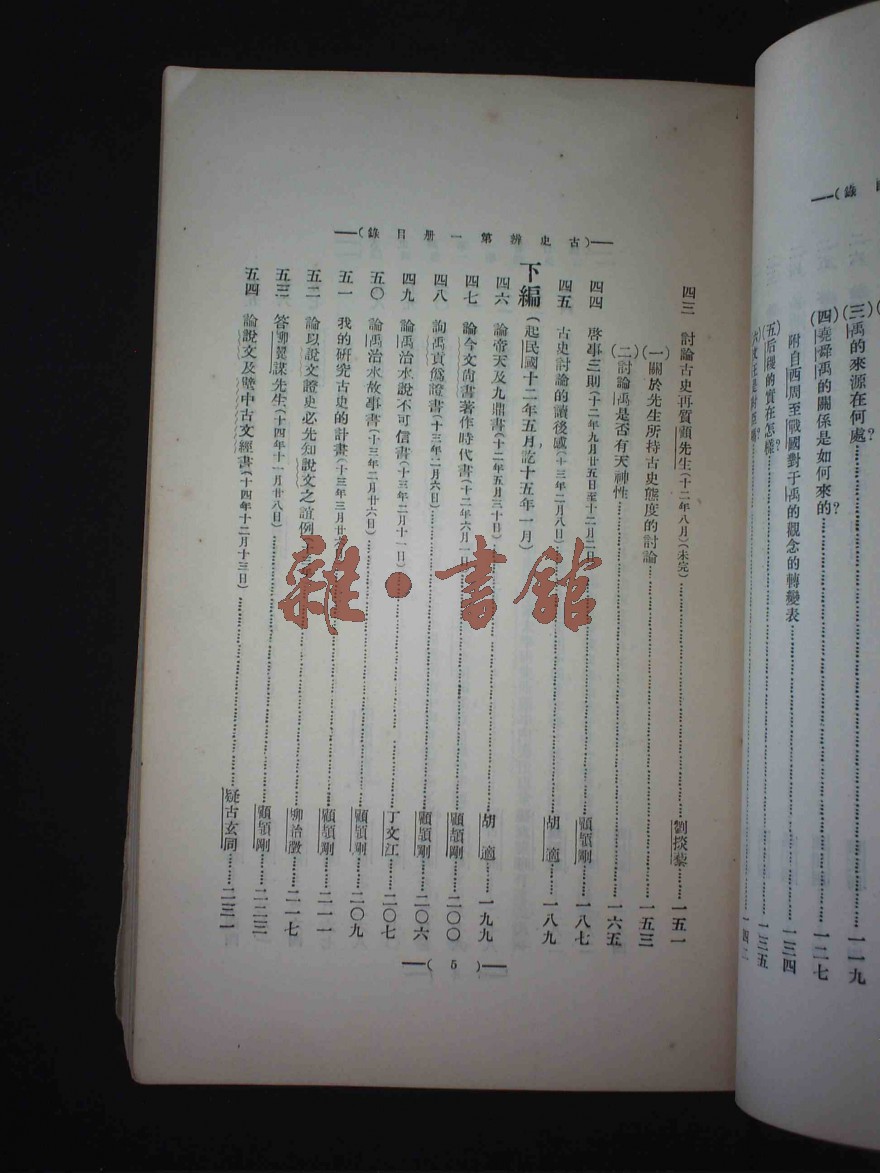 錄)——
三)禹的來源在何處?……一一九
(四)堯舜禹的關係是如何來的?……一二七
附自西周至戰國對于禹的觀念的轉變表……一三四
(五)后稷的實在怎樣?……一三五
——(古史辨第一册目錄)——
四三 討論古史再質顧先生(十二年八月)(未完)……劉掞藜……一五一
(一)關於先生所持古史態度的討論……一五三
(二)討論禹是否有天神性……一六五
四四 啓事三則(十二年九月廿五日至十二月二日……顧頡剛……一八七
四五 古史討論的讀後感(十三年二月八日)……胡適……一八九
下編(起民國十二年五月,訖十五年一月)
四六 論帝天及九鼎書(十二年五月三十日)……胡適……一九九
四七 論今文尚書著作時代書(十二年六月一日……顧頡剛……二〇〇
四八 詢禹貢僞證書(十三年二月六日)……顧頡剛……二〇六
四九 論禹治水說不可信書(十三年二月十一日)……丁文江……二〇七
五〇 論禹治水故事書(十三年二月廿六日)……顧頡剛……二〇九
五一 我的研究古史的計畫(十三年三月廿……顧頡剛……二一一
五二 論以說文證史必先知說文之誼例……柳詒徵……二一七
五三 答柳翼謀先生(十四年十一月廿八日)……顧頡剛……二二三
五四 論說文及壁中古文經書(十四年十二月十三日)……疑古玄同……二三一
——(5)——
雜·書館